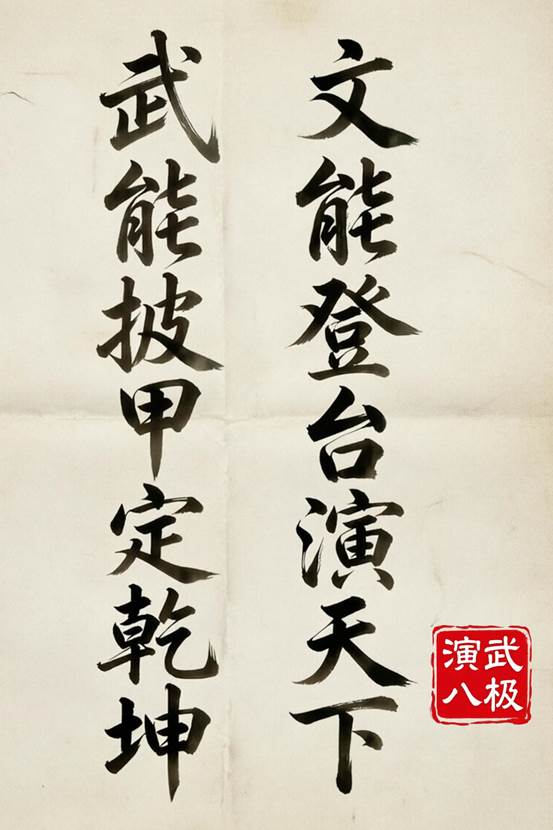 文能登台演天下
武能披甲定乾坤
武极
演八